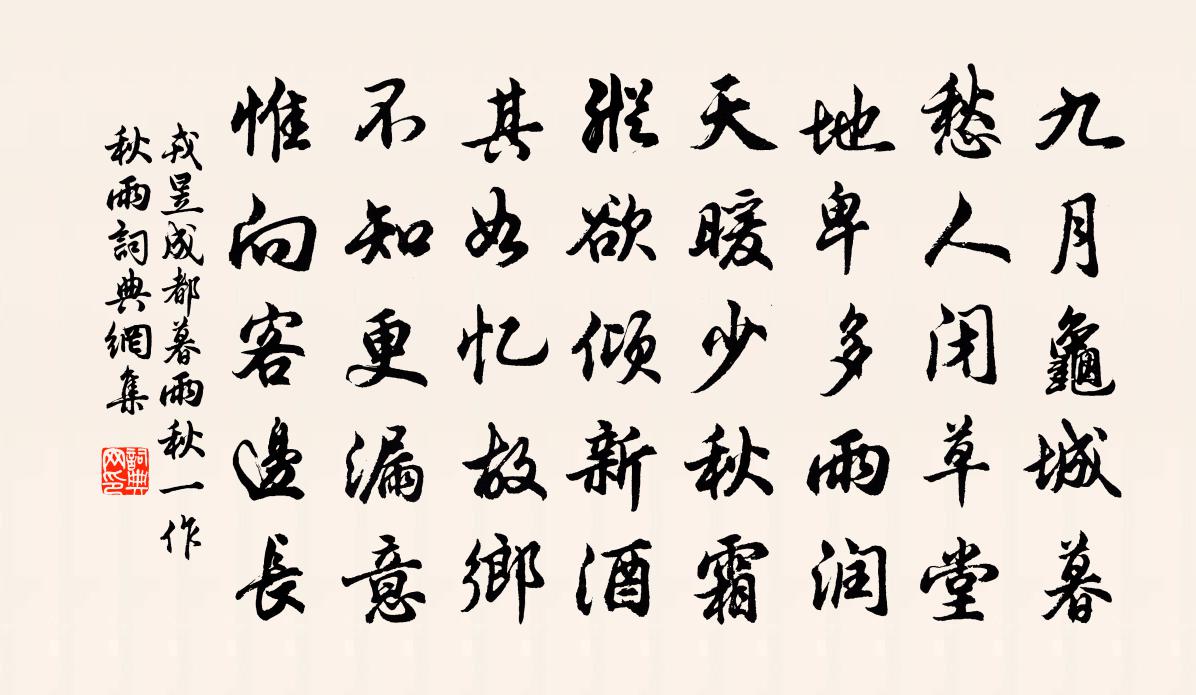 九月龜城暮
愁人闭草堂
地卑多雨润
天暖少秋霜
縱欲倾新酒
其如忆故鄉
不知更漏意
惟向客邊長
戎昱成都暮雨秋一作
秋雨詞典網集
詞典
网印